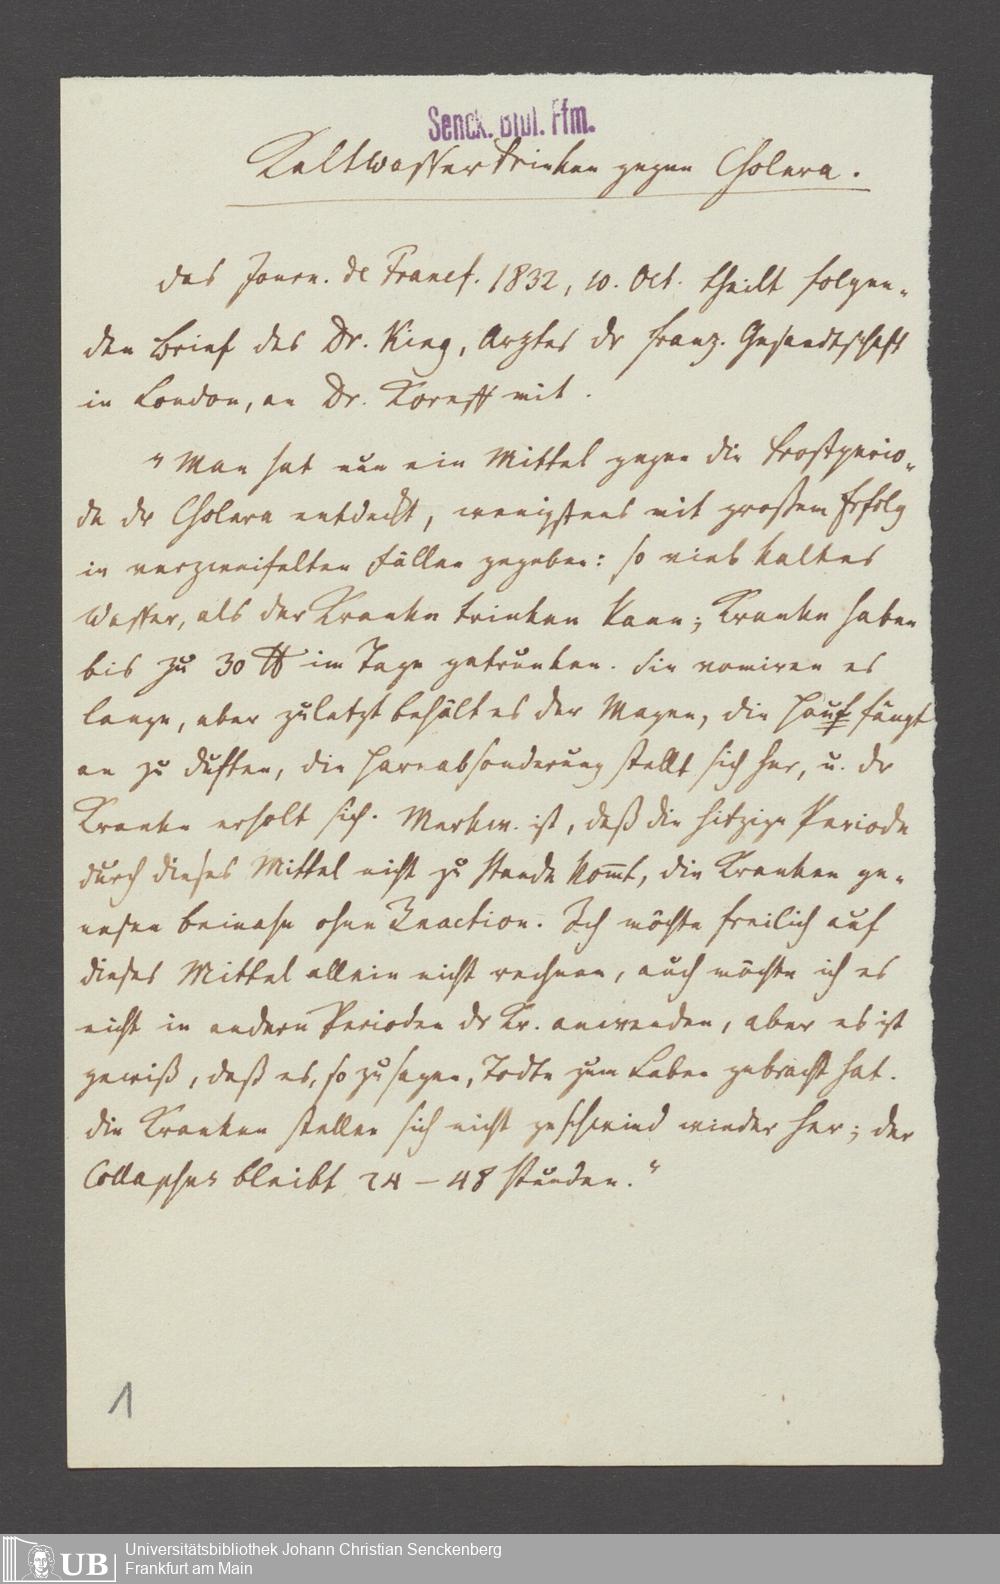 Senck. Bibl. Ffm.
Kaltwassertrinken gegen Cholera.
Das Journ. de Francf. 1832, 10. Oct. theilt folgen-
den Brief des Dr. King, Arztes dr franz. Gesandtschaft
in London, an Dr. Koreff mit.
"Man hat nun ein Mittel gegen die Frostperio-
de dr Cholera entdeckt, wenigstens mit großem Erfolg
in verzweifelten Fällen gegeben: so viel kaltes
Wasser, als der Kranke trinken kann; Kranke haben
bis zu 30 ℔ im Tage getrunken. Sie vomiren es
lange, aber zuletzt behält es der Magen, die Haut fängt
an zu duften, die Harnabsonderung stellt sich her, u. dr
Kranke erholt sich. Merkw. ist, daß die hitzige Periode
durch dieses Mittel nicht zu Stande kom̅t, die Kranken ge-
nesen beinahe ohne Reaction. Ich möchte freilich auf
dieses Mittel allein nicht rechnen, auch möchte ich es
nicht in andern Perioden dr Kr. anwenden, aber es ist
gewiß, daß es, so zu sagen, Todte zum Leben gebracht hat.
Die Kranken stellen sich nicht geschwind wieder her; der
Collapsus bleibt 24 – 48 Stunden."
1
UB
Universitätsbibliothek Johann Christian Senckenberg
Frankfurt am Main